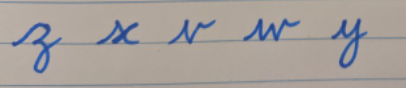 z x v w y